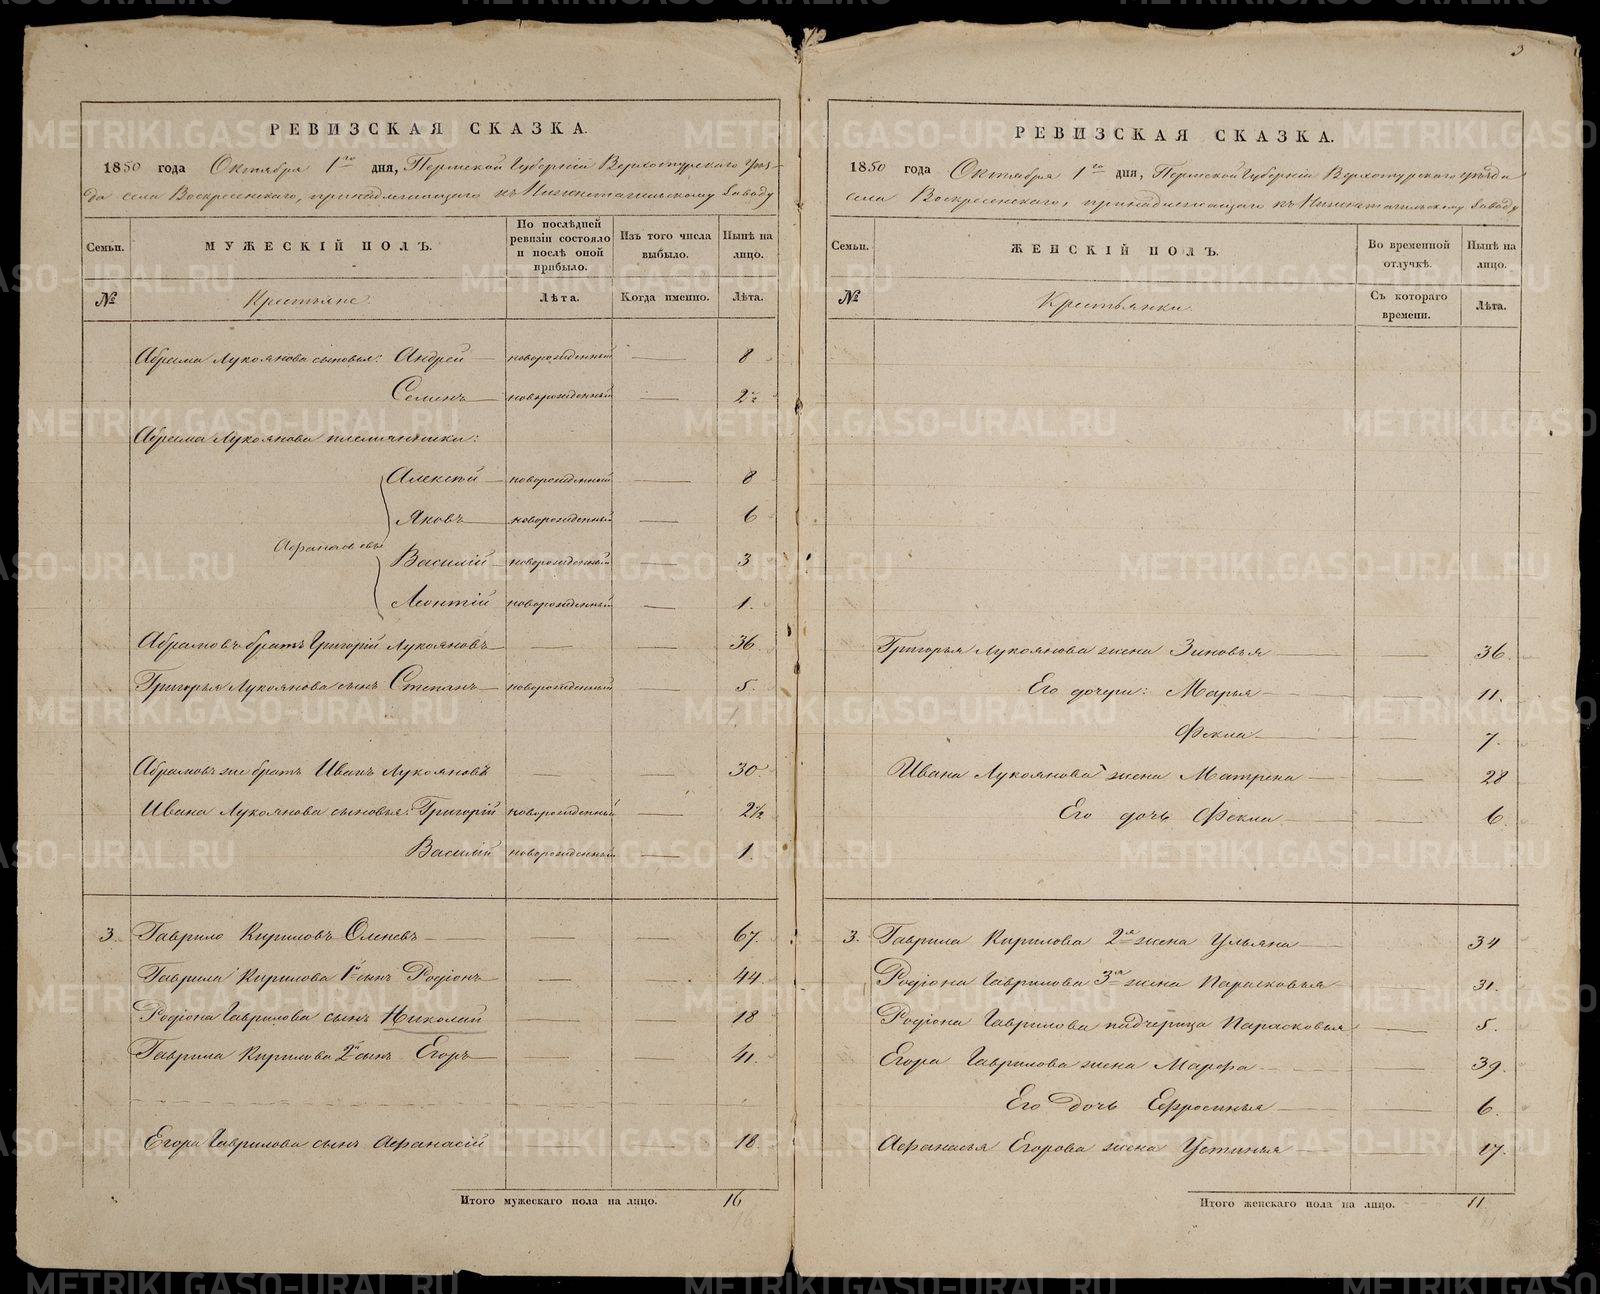 3
РЕВИЗСКАЯ СКАЗКА.
1850 года Октября 1го дня, Пермской Губерніи Верхотурскаго Уез-
да села Воскресенскаго, принадлежащаго къ Нижнетагильскому Заводу
Семьи.
МУЖЕСКІЙ ПОЛЪ.
По послѣдней ревизіи состояло и послѣ оной прибыло.
Изъ того числа выбыло.
Нынѣ на лицо.
№
Крестьяне.
Лѣта.
Когда именно.
Лѣта.
Абрама Лукоянова сыновья: Андрей — новорожденный — 8
Семенъ — новорожденный — 2½
Абрама Лукоянова племянники:
Алексѣй — новорожденный — 8
Яковъ — новорожденный — 6
Афанасьевы
Василій — новорожденный — 3
Леонтій — новорожденный — 1.
Абрамовъ братъ Григорій Лукояновъ — — — 36
Григорья Лукоянова сынъ Степанъ — новорожденный — 5.
Абрамовъ же братъ Иванъ Лукояновъ — — 30
Ивана Лукоянова сыновья: Григорій новорожденный — 2½
Василій новорожденный — 1.
3. Гаврило Кириловъ Оленевъ — — — 67.
Гаврила Кирилова 1й сынъ Родіонъ — — — 44
Родіона Гаврилова сынъ Николай — — 18
Гаврила Кирилова 2й сынъ Егоръ — — — 41.
Егора Гаврилова сынъ Афанасій — — 18.
Итого мужескаго пола на лицо. 16
РЕВИЗСКАЯ СКАЗКА.
1850 года Октября 1го дня, Пермской Губерніи Верхотурскаго уѣзда
села Воскресенскаго, принадлежащаго къ Нижнетагильскому Заводу
Семьи.
ЖЕНСКІЙ ПОЛЪ.
Во временной отлучкѣ.
Нынѣ на лицо.
№
Крестьянки.
Съ котораго времени.
Лѣта.
Григорья Лукоянова жена Зиновья — — 36.
Его дочери: Марья — — 11.
Фекла — — 7.
Ивана Лукоянова жена Матрена — — 28
Его дочь Фекла — — 6.
3. Гаврила Кирилова 2я жена Ульяна — — 34
Родіона Гаврилова 3я жена Парасковья — — 31.
Родіона Гаврилова падчерица Парасковья — — 5.
Егора Гаврилова жена Марфа — — 39.
Его дочь Ефросинья — — 6.
Афанасья Егорова жена Устинья — — 17.
Итого женскаго пола на лицо. 11.
METRIKI.GASO-URAL.RU